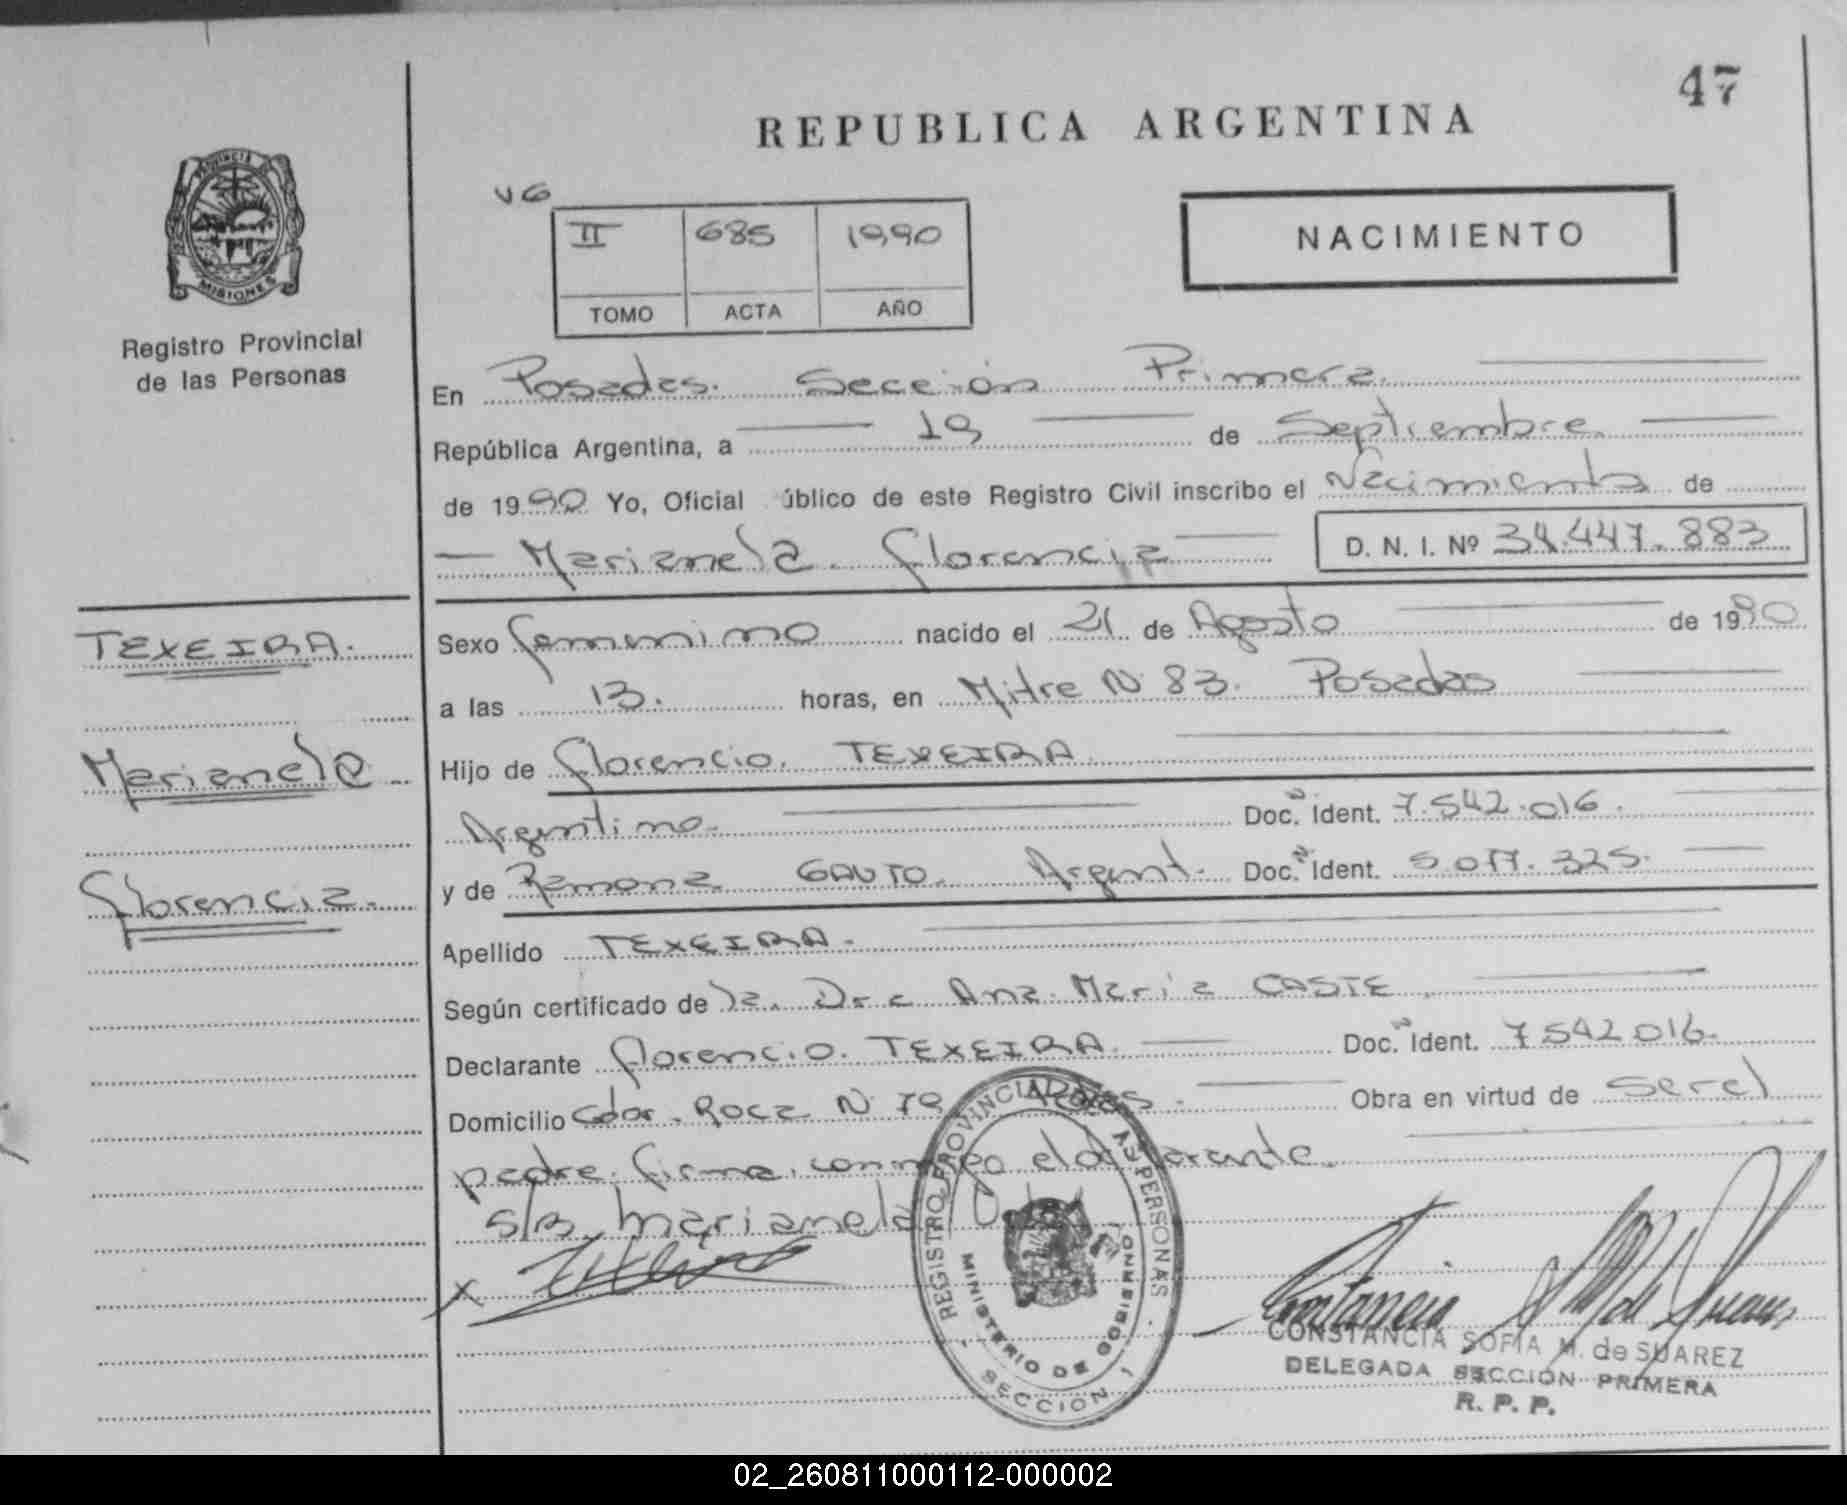 47
REPUBLICA ARGENTINA
VG
II 685 1990
TOMO ACTA AÑO
NACIMIENTO
PROVINCIA DE MISIONES
Registro Provincial
de las Personas
En Posadas. Sección Primera
República Argentina, a 19 de Septiembre
de 1990 Yo, Oficial úblico de este Registro Civil inscribo el Nacimiento de
Marianela Florencia D. N. I. Nº 34.447.883
TEXEIRA.
Marianela
Florencia.
Sexo femenino nacido el 21 de Agosto de 1990
a las 13. horas, en Mitre N 83. Posadas
Hijo de Florencio. TEXEIRA
Argentino. Doc. Ident. 7.542.016.
y de Ramona GAUTO. Argent. Doc. Ident. 5.077.325.
Apellido TEXEIRA.
Según certificado de la. Dra Ana Maria CASTE
Declarante Florencio. TEXEIRA. Doc. Ident. 7542016.
Domicilio Cdor. Roca N 79 Obra en virtud de ser el
padre. firma. conmigo el declarante.
S/B. Marianela
x
REGISTRO PROVINCIAL DE LAS PERSONAS
MINISTERIO DE GOBIERNO
SECCION 1
CONSTANCIA SOFIA M. de SUAREZ
DELEGADA SECCION PRIMERA
R. P. P.
02_260811000112-000002